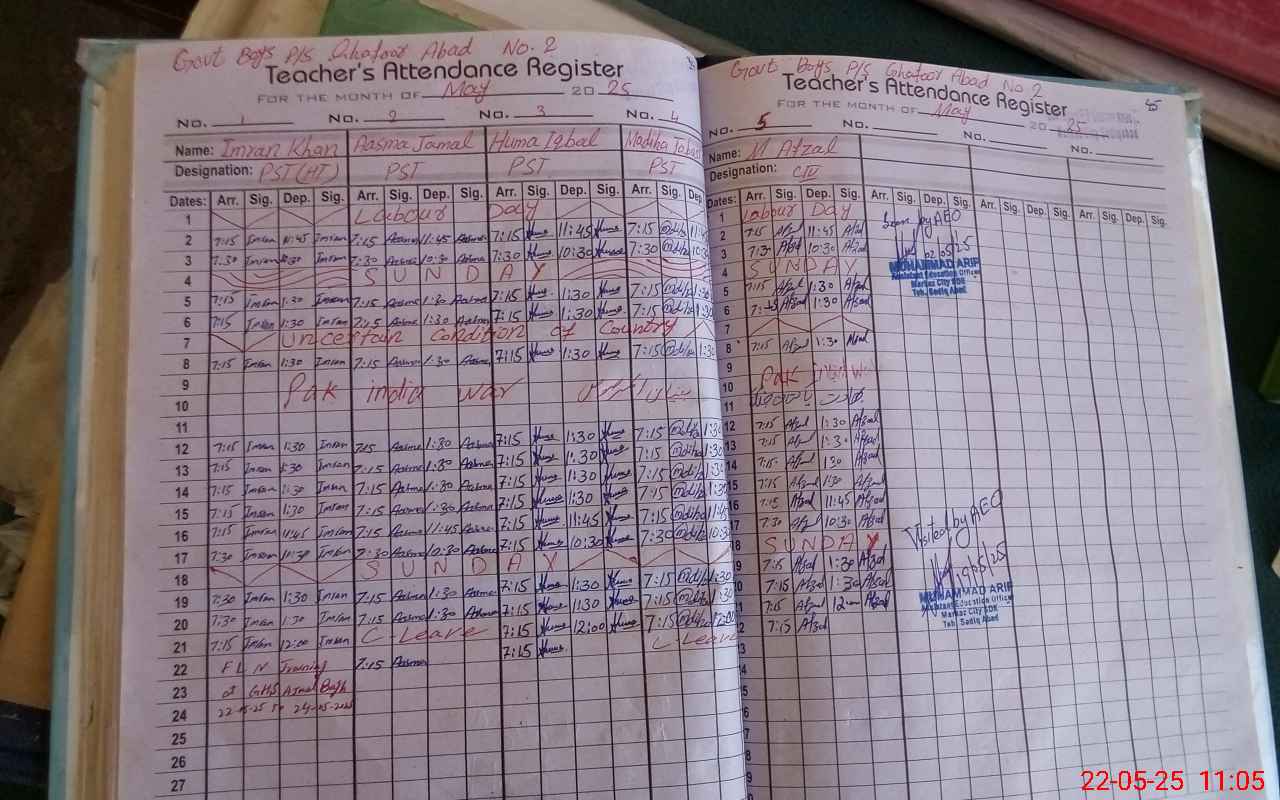 Govt Boys P/S Ghafoor Abad No. 2
Teacher's Attendance Register
FOR THE MONTH OF May 2025
No. 1 No. 2 No. 3 No. 4
Name: Imran Khan Aasma Jamal Huma Iqbal Madiha
Designation: PST (HT) PST PST PST
Dates: Arr. Sig. Dep. Sig. Arr. Sig. Dep. Sig. Arr. Sig. Dep. Sig. Arr. Sig. Dep.
1 Labour Day
2 7:15 Imran 11:45 Imran 7:15 Aasma 11:45 Aasma 7:15 Huma 11:45 Huma 7:15 Madiha
3 7:30 Imran 10:30 Imran 7:30 Aasma 10:30 Aasma 7:30 Huma 10:30 Huma 7:30 Madiha
4 SUNDAY
5 7:15 Imran 1:30 Imran 7:15 Aasma 1:30 Aasma 7:15 Huma 1:30 Huma 7:15 Madiha 1:30
6 7:15 Imran 1:30 Imran 7:15 Aasma 1:30 Aasma 7:15 Huma 1:30 Huma 7:15 Madiha 1:30
7 Uncertain condition of Country
8 7:15 Imran 1:30 Imran 7:15 Aasma 1:30 Aasma 7:15 Huma 1:30 Huma 7:15 Madiha 1:30
9 Pak india war
10
11
12 7:15 Imran 1:30 Imran 7:15 Aasma 1:30 Aasma 7:15 Huma 1:30 Huma 7:15 Madiha 1:30
13 7:15 Imran 1:30 Imran 7:15 Aasma 1:30 Aasma 7:15 Huma 1:30 Huma 7:15 Madiha 1:30
14 7:15 Imran 1:30 Imran 7:15 Aasma 1:30 Aasma 7:15 Huma 1:30 Huma 7:15 Madiha 1:30
15 7:15 Imran 1:30 Imran 7:15 Aasma 1:30 Aasma 7:15 Huma 1:30 Huma 7:15 Madiha 1:30
16 7:15 Imran 11:45 Imran 7:15 Aasma 11:45 Aasma 7:15 Huma 11:45 Huma 7:15 Madiha 11:45
17 7:30 Imran 10:30 Imran 7:30 Aasma 10:30 Aasma 7:15 Huma 10:30 Huma 7:30 Madiha 10:30
18 SUNDAY
19 7:30 Imran 1:30 Imran 7:15 Aasma 1:30 Aasma 7:15 Huma 1:30 Huma 7:15 Madiha 1:30
20 7:30 Imran 1:30 Imran 7:15 Aasma 1:30 Aasma 7:15 Huma 1:30 Huma 7:15 Madiha 1:30
21 7:15 Imran 12:00 Imran C-Leave 7:15 Huma 12:00 Huma 7:15 Madiha 12:00
22 F L N Training 7:15 Aasma 7:15 Huma C Leave
23 at GHS
24 22-05-25 to 24-05-2025
25
26
27
Govt Boys P/S Ghafoor Abad No 2
Teacher's Attendance Register
45
FOR THE MONTH OF May 2025
No. 5 No. No. No.
Name: M Afzal
Designation:
Dates: Arr. Sig. Dep. Sig. Arr. Sig. Dep. Sig. Arr. Sig. Dep. Sig. Arr. Sig. Dep. Sig.
1 Labour Day
2 7:15 Afzal 11:45 Afzal
3 7:30 Afzal 10:30 Afzal
4 SUNDAY
5 7:15 Afzal 1:30 Afzal
6 7:15 Afzal 1:30 Afzal
7
8 7:15 Afzal 1:30 Afzal
9
10 Pak India War
11
12 7:15 Afzal 1:30 Afzal
13 7:15 Afzal 1:30 Afzal
14 7:15 Afzal 1:30 Afzal
15 7:15 Afzal 1:30 Afzal
16 7:15 Afzal 11:45 Afzal
17 7:30 Afzal 10:30 Afzal
18 SUNDAY
7:15 Afzal 1:30 Afzal
7:15 Afzal 1:30 Afzal
7:15 Afzal 12 Afzal
7:15 Afzal
Seen by AEO
02/05/25
MUHAMMAD ARIF
Assistant Education Officer
Markaz City SDK
Teh. Sadiq Abad
Visited by AEO
19/05/25
MUHAMMAD ARIF
Assistant Education Officer
Markaz City SDK
Teh. Sadiq Abad
22-05-25 11:05